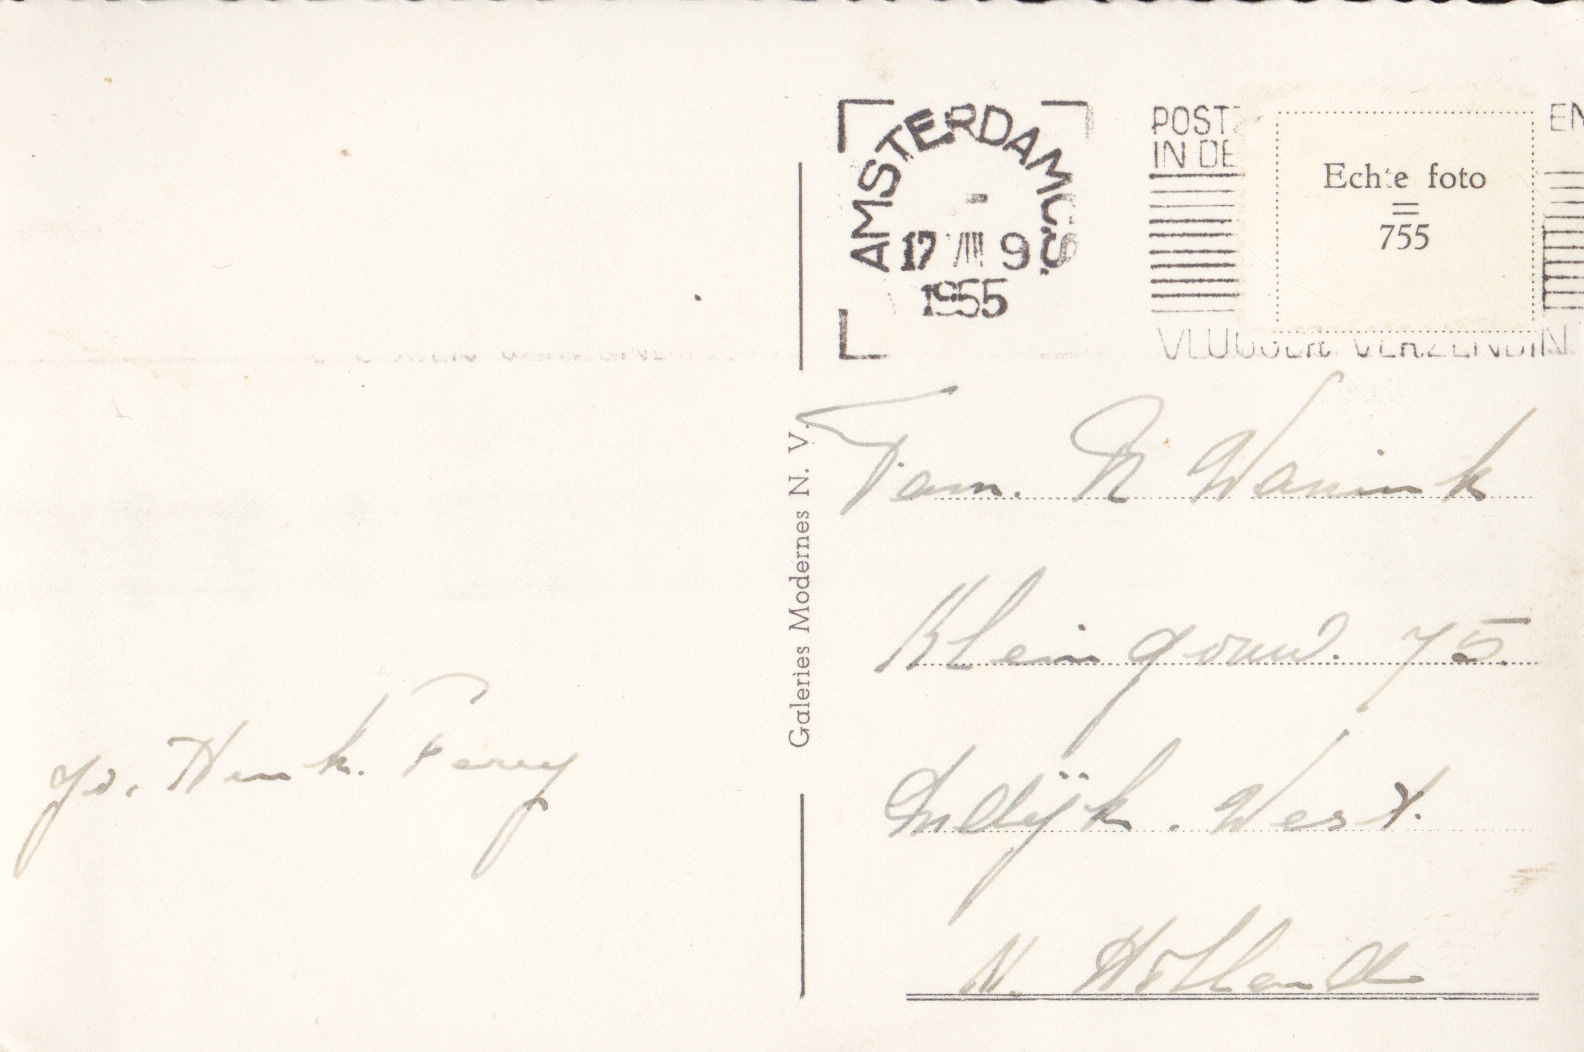 AMSTERDAM C.S.
17 VIII 9
1955
POSTZ EN
IN DE
VLUGGER VERZENDIN
Echte foto
755
Galeries Modernes N. V.
Fam. N Wanink
Klein gouw. 75.
Andijk. West.
N. Holland
Jo, Henk. Ferry